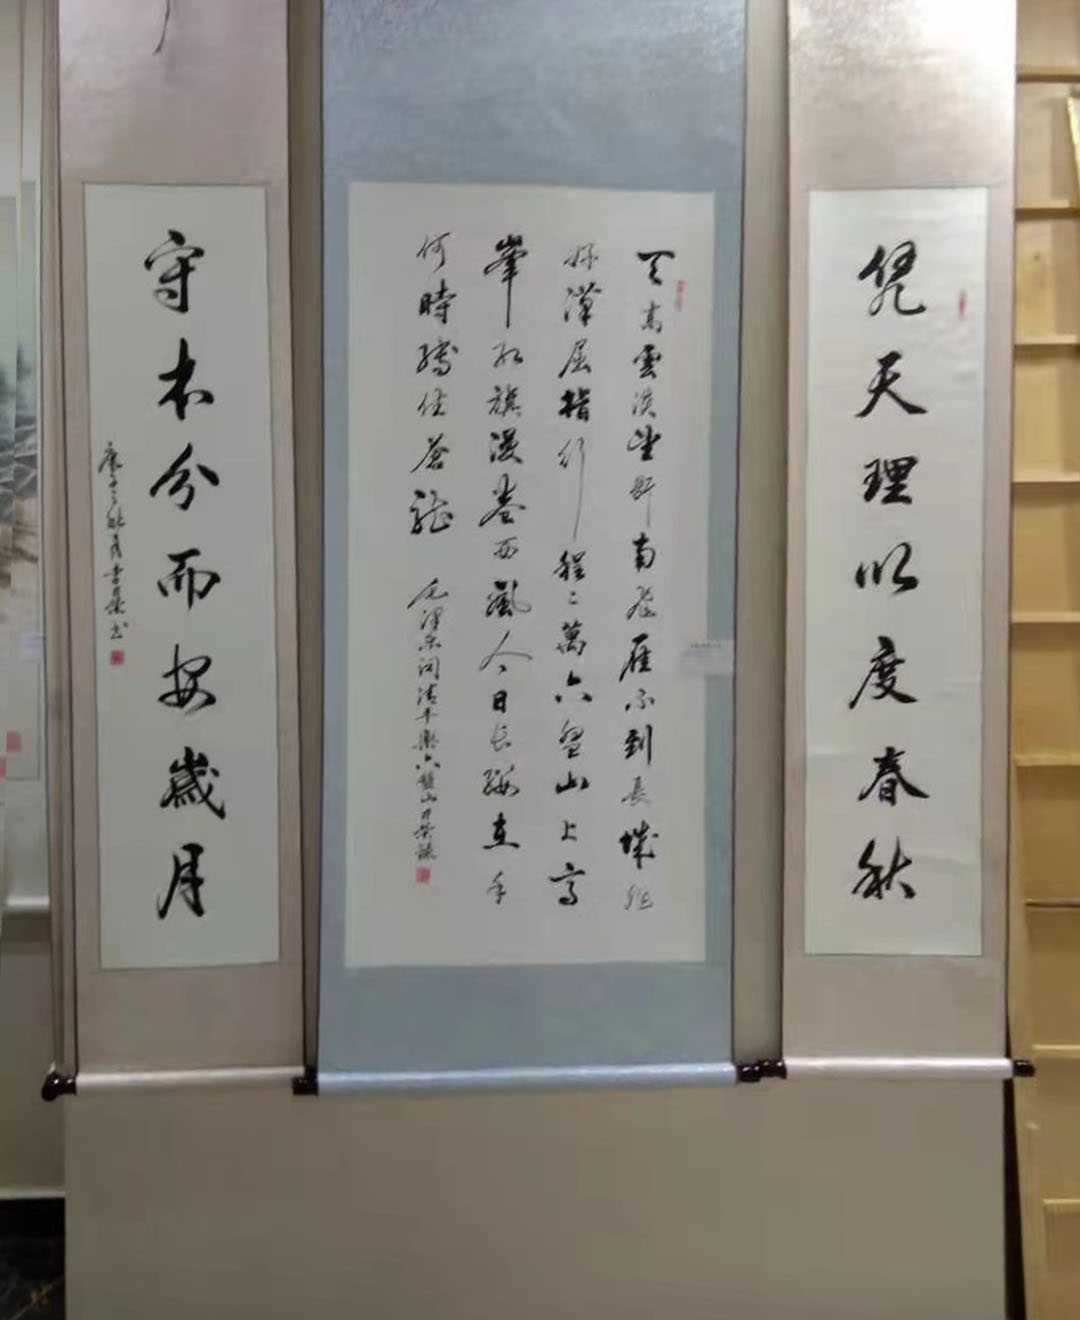 凭天理以度春秋
天高雲淡望断南飛雁不到長城非
好漢屈指行程二萬六盤山上高
峯紅旗漫卷西風今日長纓在手
何時縛住蒼龍 毛澤東詞清平樂六盤山
守本分而安歲月